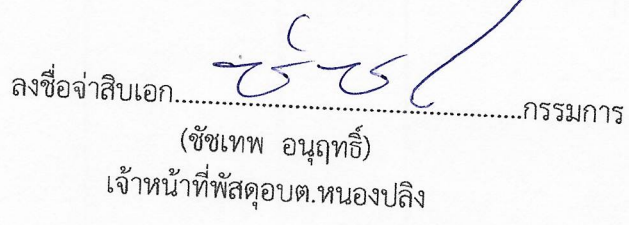 ลงชื่อจ่าสิบเอก................................................................กรรมการ
(ชัชเทพ อนุฤทธิ์)
เจ้าหน้าที่พัสดุอบต.หนองปลิง